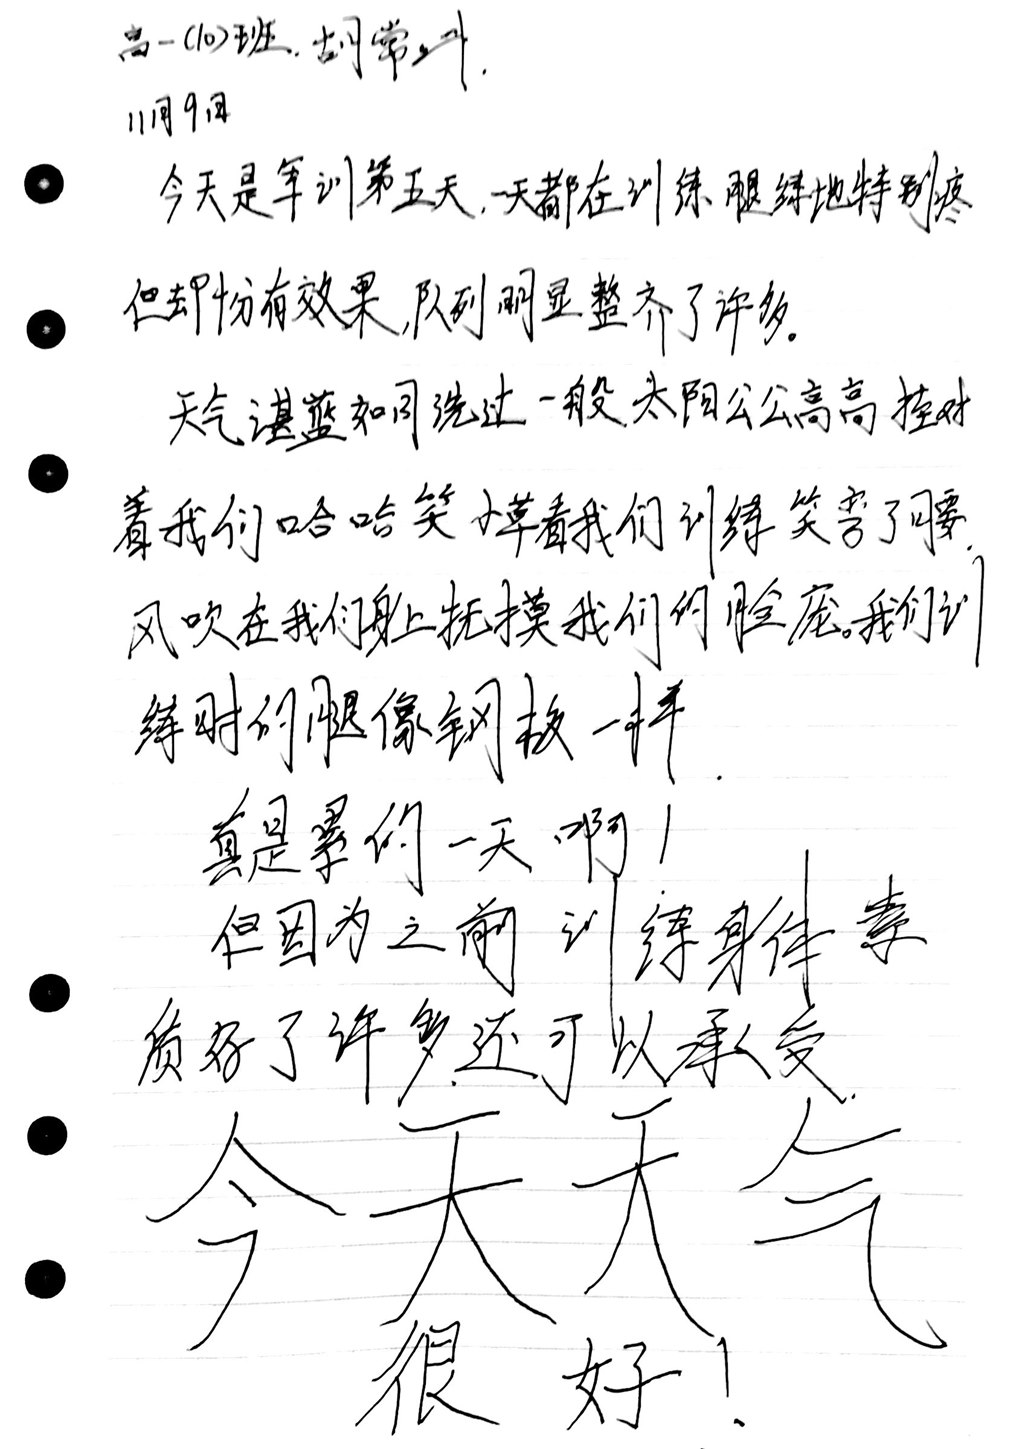 高一(10)班.胡常
11月9日
今天是军训第五天,一天都在训练腿练地特别疼
但却十份有效果,队列明显整齐了许多。
天气湛蓝如同洗过一般,太阳公公高高挂对
着我们哈哈笑小草看我们训练笑弯了腰.
风吹在我们身上抚摸我们的脸庞。我们训
练时的腿像钢板一样.
真是累的一天啊!
但因为之前训练身体素
质好了许多,还可以承受.
今天天气
很好!